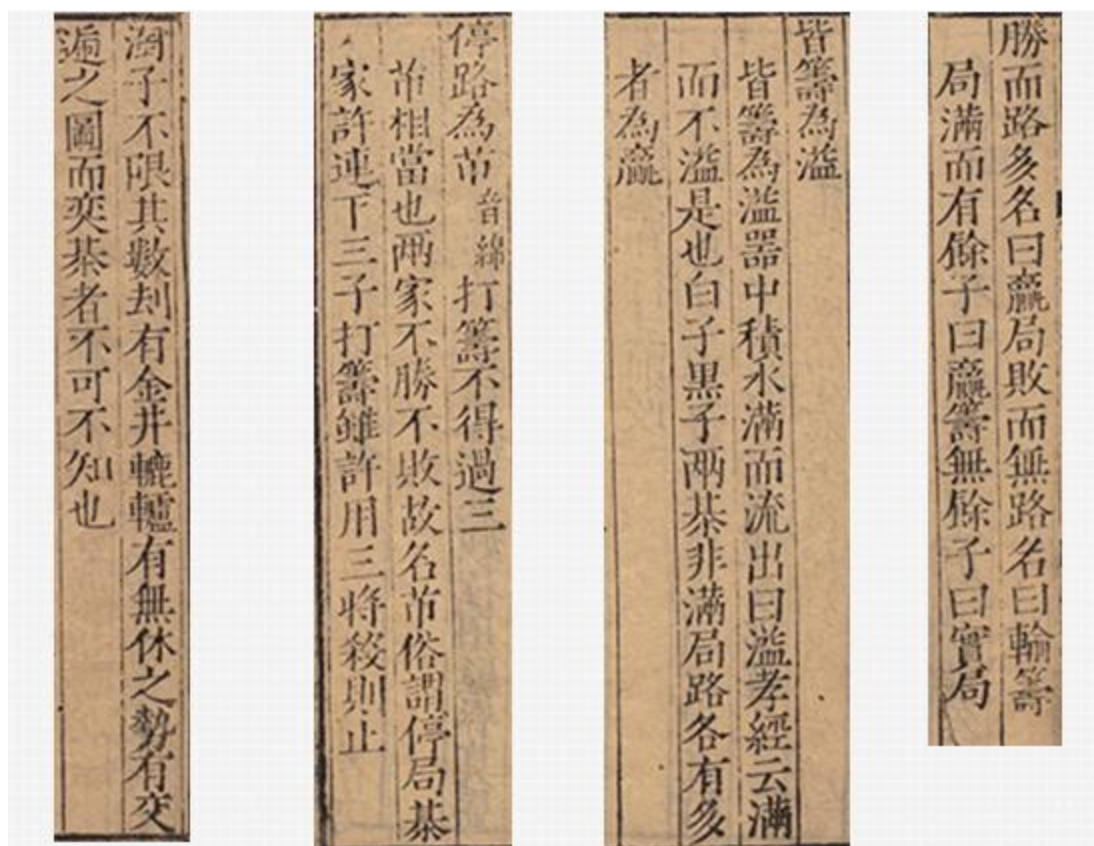 勝而路多名曰贏局敗而無路名曰輸籌
局滿而有餘子曰贏籌無餘子曰實局
皆籌為溢
皆籌為溢器中積水滿而流出曰溢孝經云滿
而不溢是也白子黑子兩棊非滿局路各有多
者為贏
停路為芇音綿打籌不得過三
芇相當也兩家不勝不敗故名芇俗謂停局棊
家許連下三子打籌雖許用三將殺則止
淘子不限其數刦有金井轆轤有無休之勢有交
遞之圖而奕棊者不可不知也